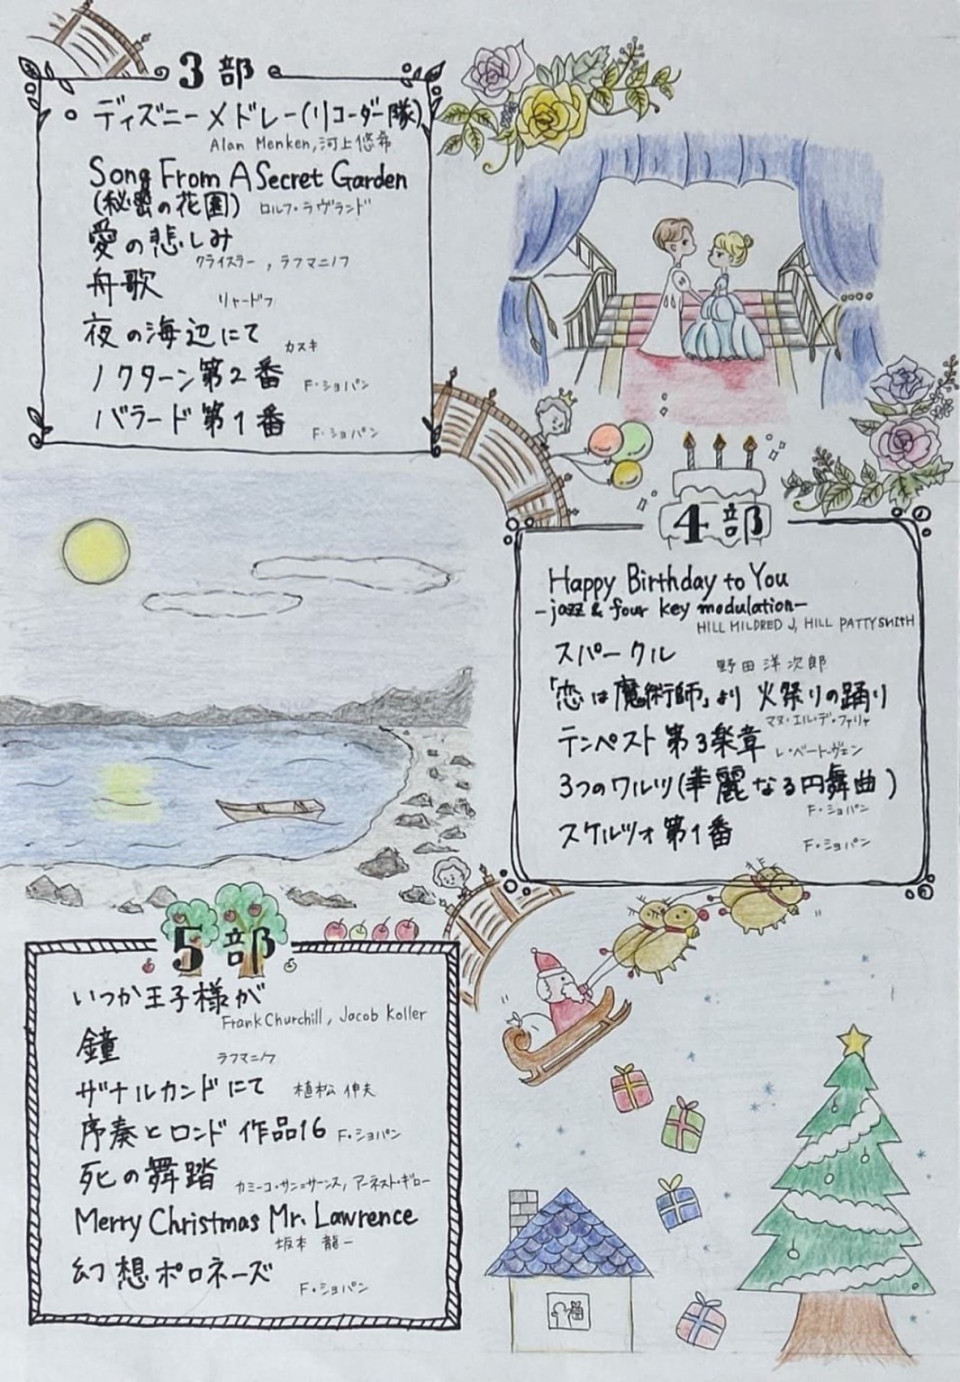 3部
ディズニーメドレー(リコーダー隊)
Alan Menken,河上悠希
Song From A Secret Garden
(秘密の花園) ロルフ・ラヴランド
愛の悲しみ
クライスラー , ラフマニノフ
舟歌
リャードフ
夜の海辺にて
カスキ
ノクターン第2番 F・ショパン
バラード第1番 F・ショパン
4部
Happy Birthday to You
-jazz & four key modulation-
HILL MILDRED J, HILL PATTY SMITH
スパークル
野田洋次郎
「恋は魔術師」より 火祭りの踊り
マヌ・エル・デ・ファリャ
テンペスト第3楽章 L・ベートーヴェン
3つのワルツ(華麗なる円舞曲)
F・ショパン
スケルツォ第1番 F・ショパン
5部
いつか王子様が
Frank Churchill, Jacob Koller
鐘
ラフマニノフ
ザナルカンドにて 植松 伸夫
序奏とロンド 作品16 F・ショパン
死の舞踏 カミーユ・サン=サーンス, アーネスト・ギロー
Merry Christmas Mr. Lawrence
坂本 龍一
幻想ポロネーズ
F・ショパン